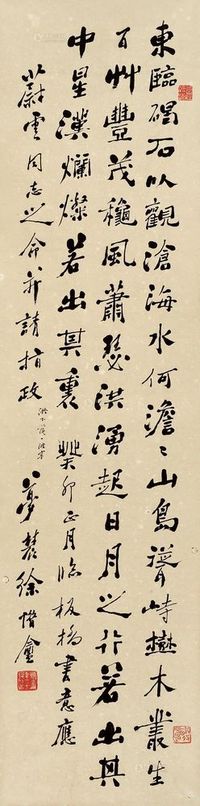 東臨碣石以觀滄海水何澹〻山島聳峙樹木叢生
百艸豐茂穐風蕭瑟洪湧起日月之行若出其
中星漢爛燦若出其裏 癸卯正月臨板橋書意應
蔚雲同志之命并請指政 徐惜盦